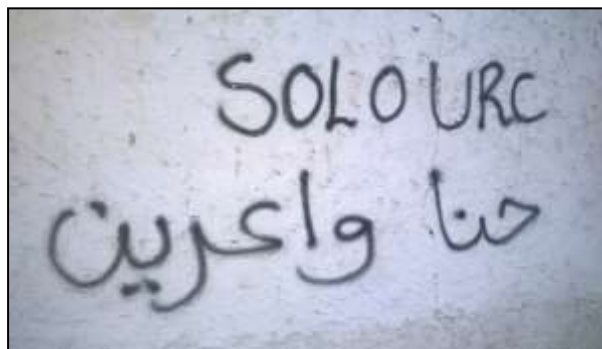 SOLO URC
حنا واعرين